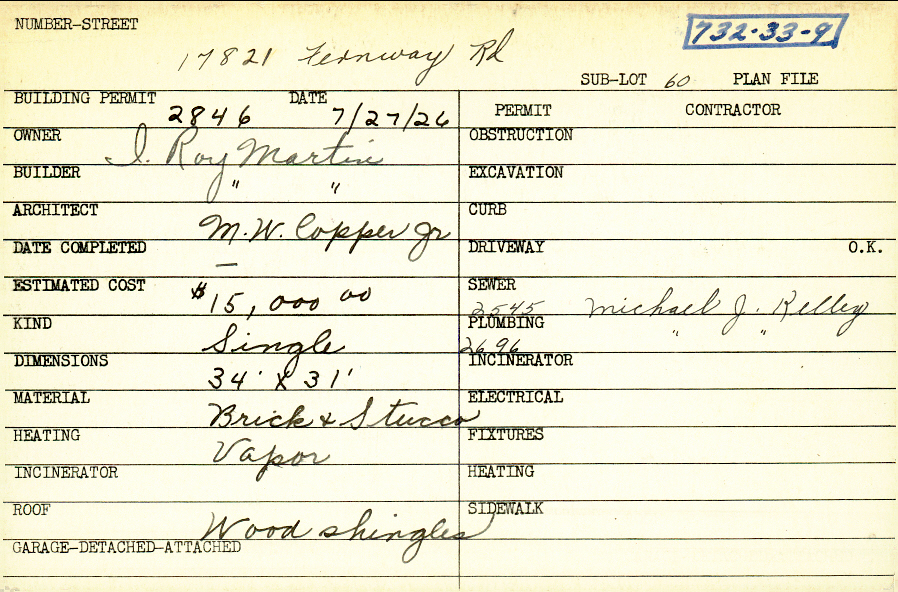 NUMBER-STREET
732-33-9
17821 Fernway Rd
SUB-LOT 60 PLAN FILE
BUILDING PERMIT 2846 DATE 7/27/26
PERMIT CONTRACTOR
OWNER I. Roy Martin
OBSTRUCTION
BUILDER " "
EXCAVATION
ARCHITECT M.W. Copper Jr
CURB
DATE COMPLETED —
DRIVEWAY O.K.
ESTIMATED COST $15,000 00
SEWER 2545 Michael J. Kelley
KIND Single
PLUMBING 2696 " "
DIMENSIONS 34' X 31'
INCINERATOR
MATERIAL Brick & Stucco
ELECTRICAL
HEATING Vapor
FIXTURES
INCINERATOR
HEATING
ROOF Wood shingles
SIDEWALK
GARAGE-DETACHED-ATTACHED